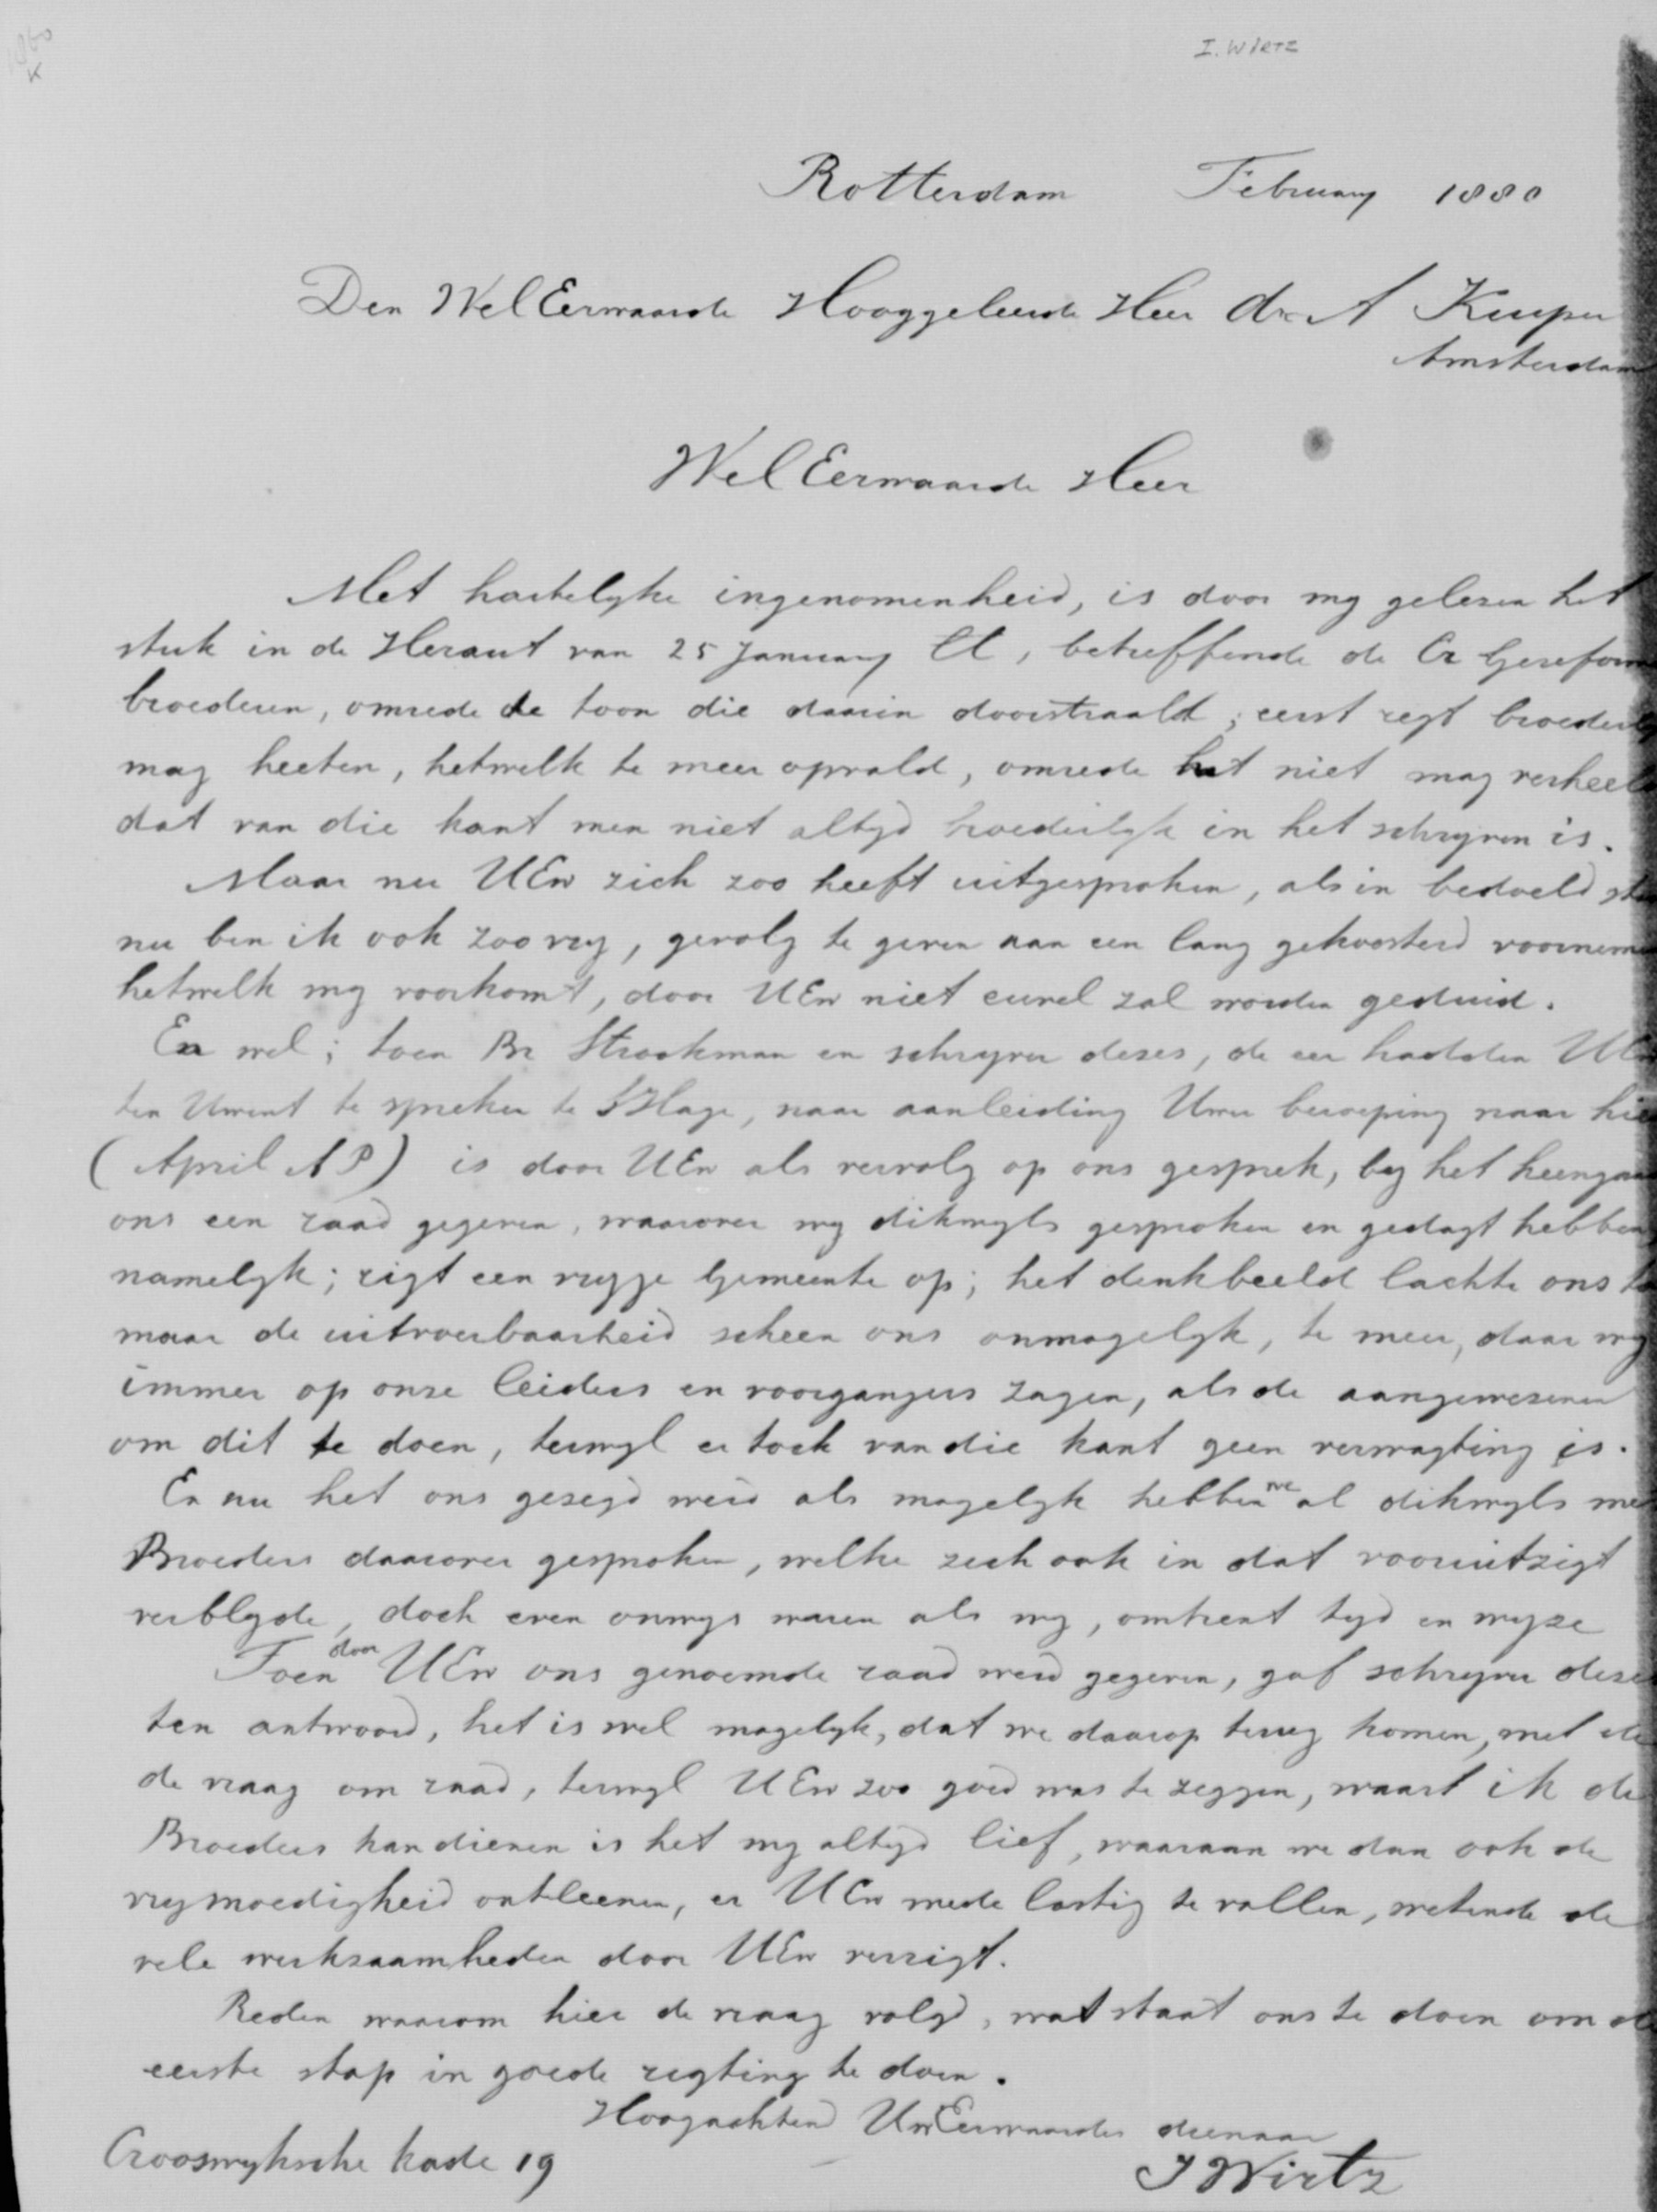 I. WIRTZ
Rotterdam February 1880
Den WelEerwaarde Hooggeleerde Heer dr A Kuyper
Amsterdam
WelEerwaarde Heer
Met hartelyke ingenomenheid, is door my gelezen het
stuk in de Heraut van 25 January ll, betreffende de Cr Gereform
broederen, omrede de toon die daarin doorstraald; eerst regt broederly
mag heeten, hetwelk te meer opvald, omrede het niet mag verheeld
dat van die kant men niet altyd broederlyk in het schryven is.
Maar nu UEw zich zoo heeft uitgesproken, als in bedoeld stu
nu ben ik ook zoo vry, gevolg te geven aan een lang gekoesterd voornemen
hetwelk my voorkomt, door UEw niet euvel zal worden geduid.
En wel; toen Br Strookman en schryver dezes, de eer hadden UEw
ten Uwent te spreken te S'Hage, naar aanleiding Uwer beroeping naar hier
(April A P) is door UEw als vervolg op ons gesprek, by het heengaan
ons een raad gegeven, waarover wy dikwyls gesproken en gedagt hebben
namelyk; rigt een vryje Gemeente op; het denkbeeld lachte ons to
maar de uitvoerbaarheid scheen ons onmogelyk, te meer, daar wy
immer op onze leiders en voorgangers zagen, als de aangewezenen
om dit te doen, terwyl er toch van die kant geen verwagting is.
En nu het ons gezegd werd als mogelyk hebben we al dikwyls met
Broeders daarover gesproken, welke zich ook in dat vooruitzigt
verblyde, doch even onwys waren als wy, omtrent tyd en wyze
Toen door UEw ons genoemde raad werd gegeven, gaf schryver dezes
ten antwoord, het is wel mogelyk, dat we daarop terug komen, met de
de vraag om raad, terwyl UEw zoo goed was te zeggen, waart ik de
Broeders kan dienen is het my altyd lief, waaraan we dan ook de
vrymoedigheid ontleenen, er UEw mede lastig te vallen, wetende de
vele werkzaamheden door UEw verrigt.
Reden waarom hier de vraag volgd, wat staat ons te doen om de
eerste stap in goede regting te doen.
Hoogachtend UwEerwaardes dienaar
Crooswyksche kade 19 I Wirtz